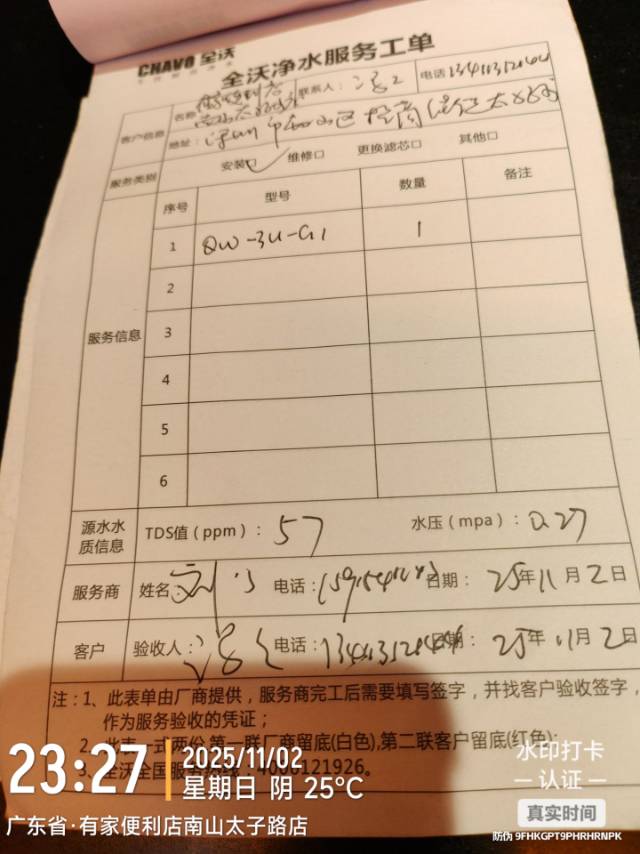 CHAVO 全沃
全沃净水服务工单
客户信息
名称
联系人:
电话
地址: 深圳市南山区招商街道太子路
服务类别
安装□✓ 维修□ 更换滤芯□ 其他□
服务信息
序号 型号 数量 备注
1 QW-3U-G1 1
2
3
4
5
6
源水水质信息
TDS值(ppm): 57 水压(mpa): 0.27
服务商 姓名: 刘 电话: 日期: 25年11月2日
客户 验收人: 电话: 日期: 25年11月2日
注:1、此表单由厂商提供,服务商完工后需要填写签字,并找客户验收签字,
作为服务验收的凭证;
2、此表一式两份,第一联厂商留底(白色),第二联客户留底(红色);
3、全沃全国服务热线:4006121926。
23:27
2025/11/02
星期日 阴 25℃
广东省·有家便利店南山太子路店
水印打卡
认证
真实时间
防伪 9FHKGPT9PHRHRNPK